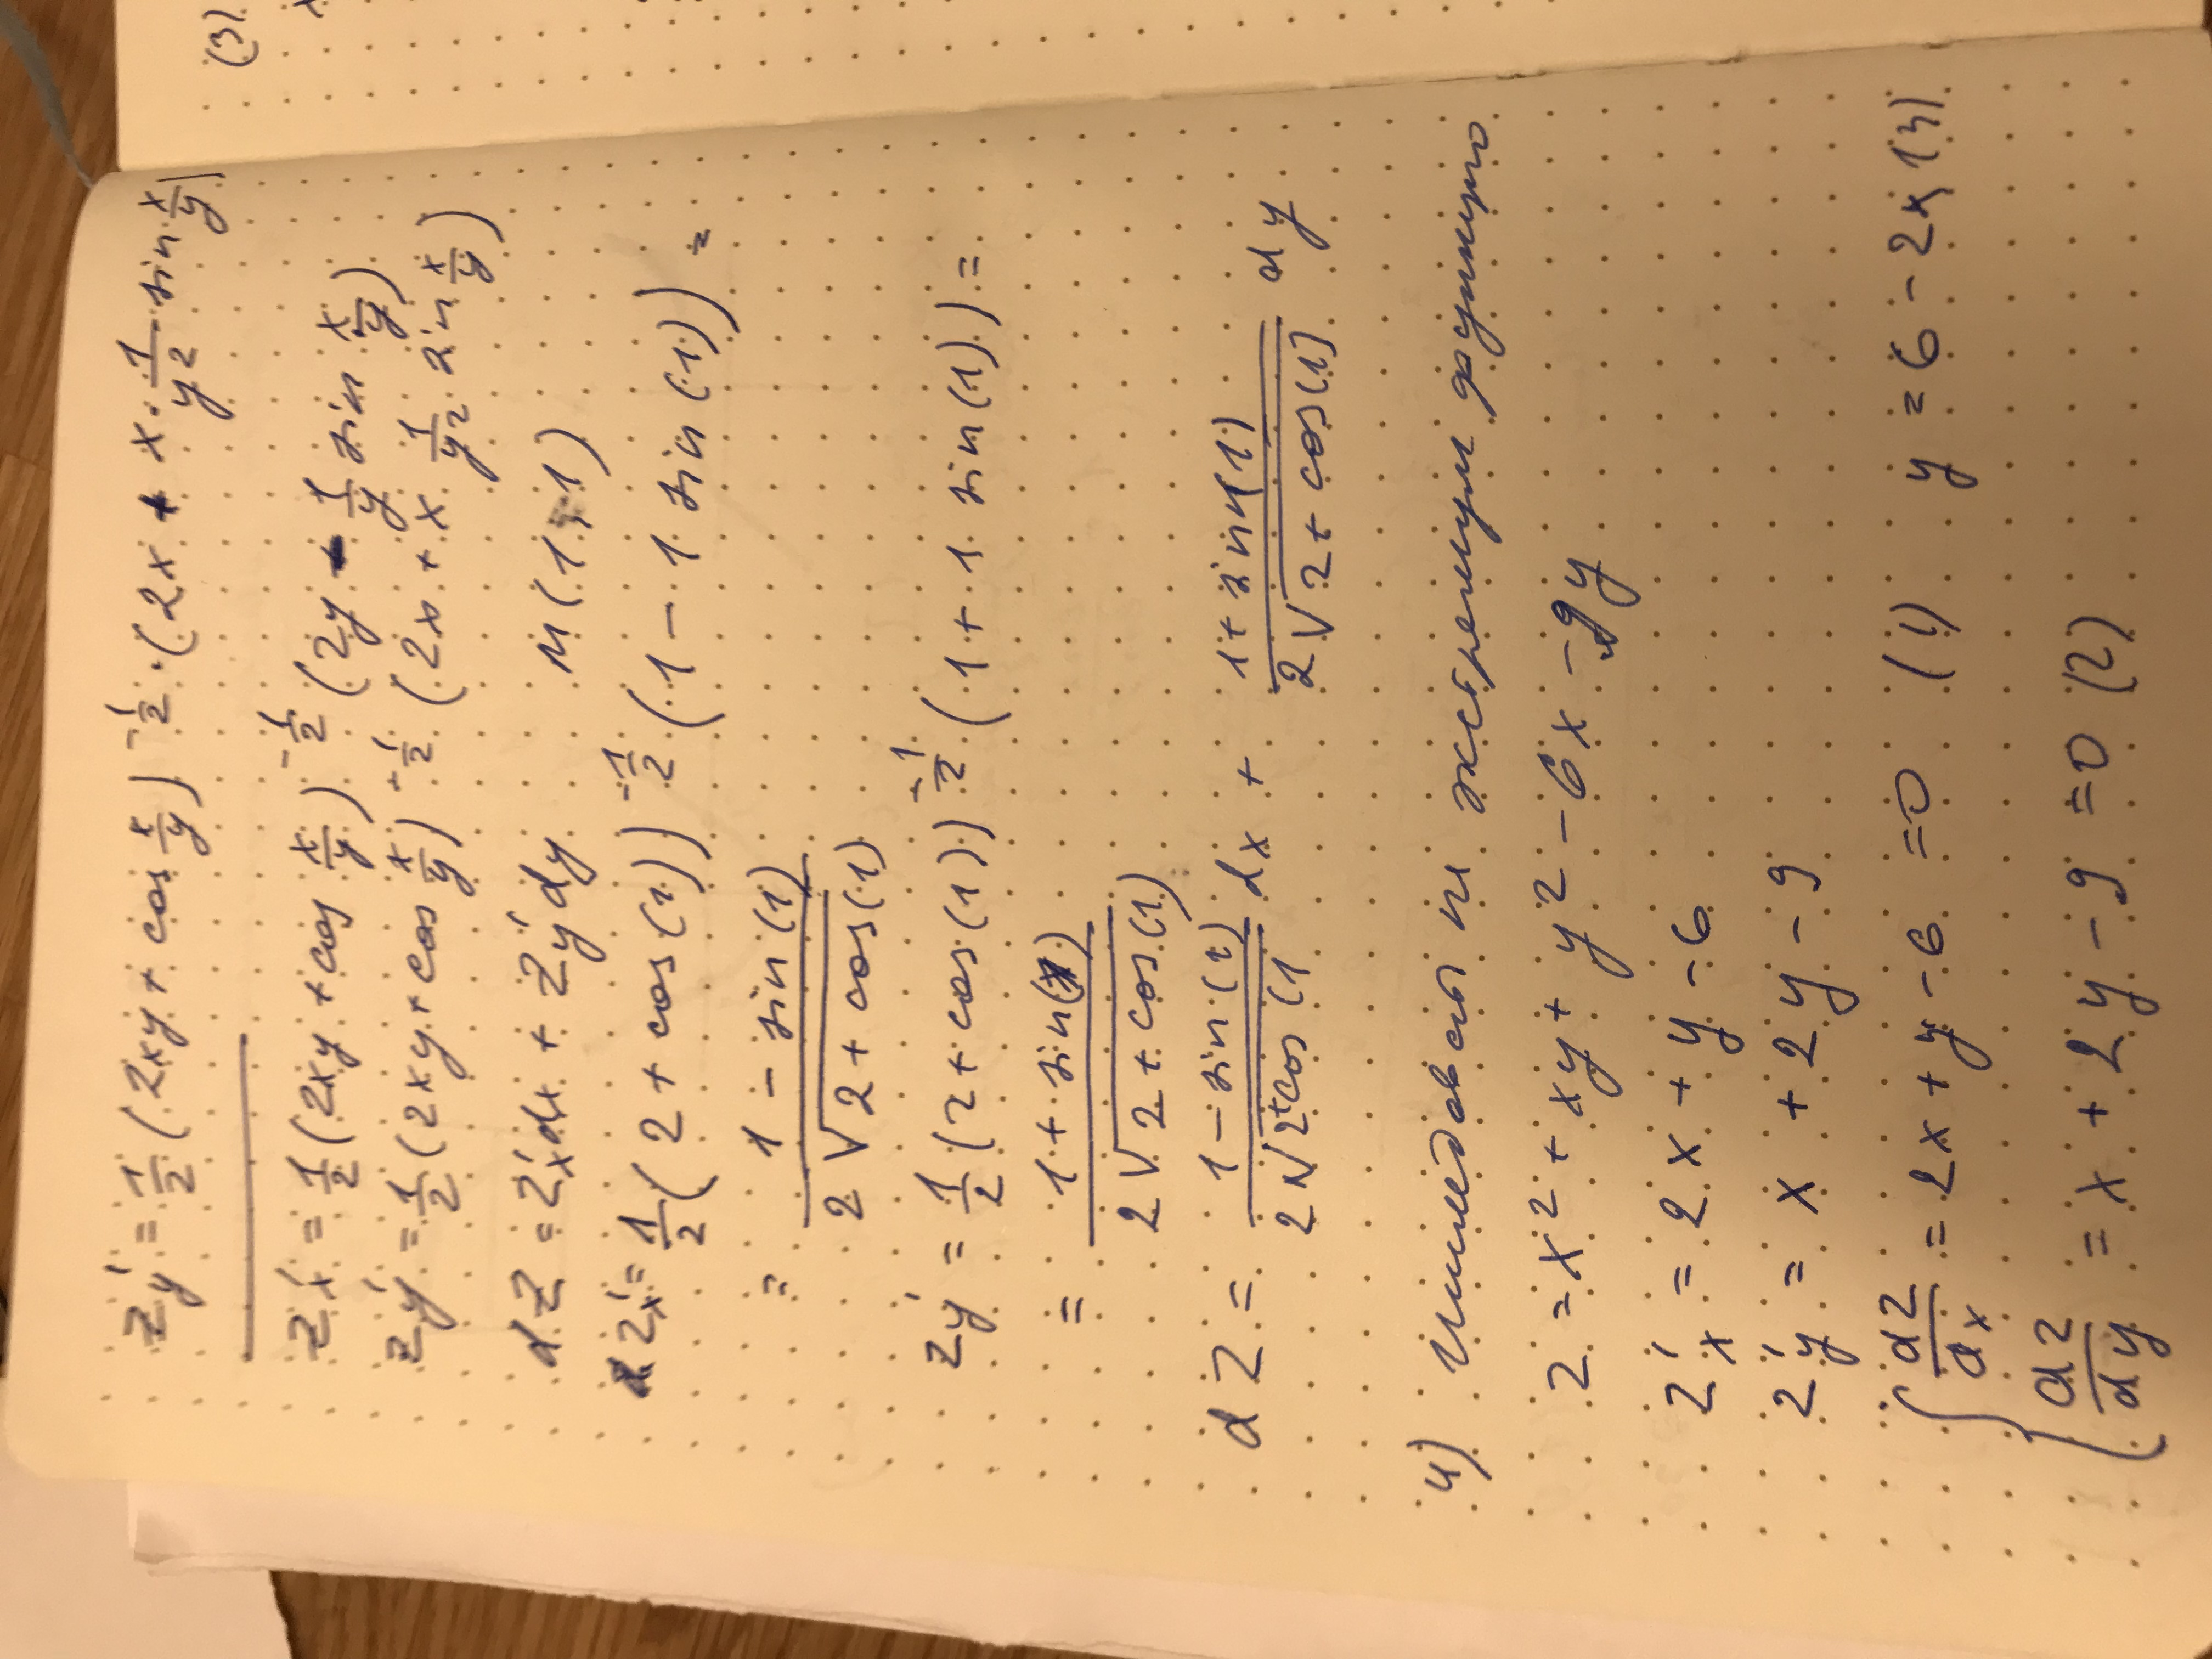 z'y = 1/2 (2xy + cos x/y)^-1/2 · (2x + x · 1/y2 · sin x/y)
z'x = 1/2 (2xy + cos x/y)^-1/2 (2y - 1/y sin x/y)
z'y = 1/2 (2xy + cos x/y)^-1/2 (2x + x 1/y2 sin x/y)
dz = z'x dx + z'y dy M(1,1)
z'x = 1/2 (2 + cos(1))^-1/2 (1 - 1 sin(1)) =
= 1 - sin(1) / 2 √2 + cos(1)
z'y = 1/2 (2 + cos(1))^-1/2 (1 + 1 sin(1)) =
= 1 + sin(1) / 2 √2 + cos(1)
dz = 1 - sin(1) / 2√2 + cos(1 dx + 1 + sin(1) / 2√2 + cos(1) dy
4) Исследовать на экстремум функцию
z = x² + xy + y² - 6x - 9y
z'x = 2x + y - 6
z'y = x + 2y - 9
{ dz/dx = 2x + y - 6 = 0 (1) y = 6 - 2x (3)
dz/dy = x + 2y - 9 = 0 (2)
(3)
x